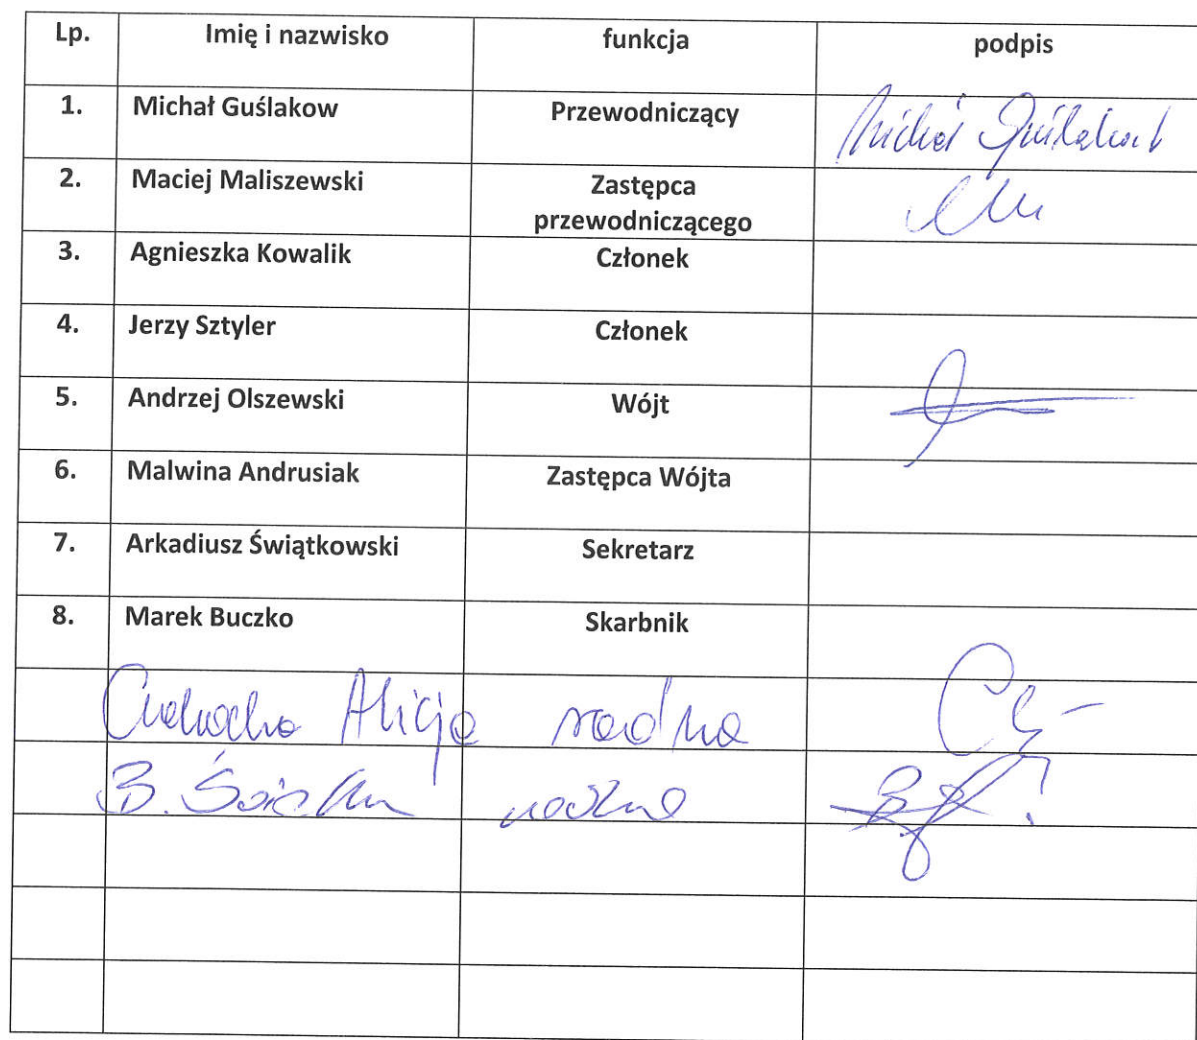 Lp. Imię i nazwisko funkcja podpis
1. Michał Guślakow Przewodniczący Michał Guślakow
2. Maciej Maliszewski Zastępca
przewodniczącego
3. Agnieszka Kowalik Członek
4. Jerzy Sztyler Członek
5. Andrzej Olszewski Wójt
6. Malwina Andrusiak Zastępca Wójta
7. Arkadiusz Świątkowski Sekretarz
8. Marek Buczko Skarbnik
Alicja radna
B. radna